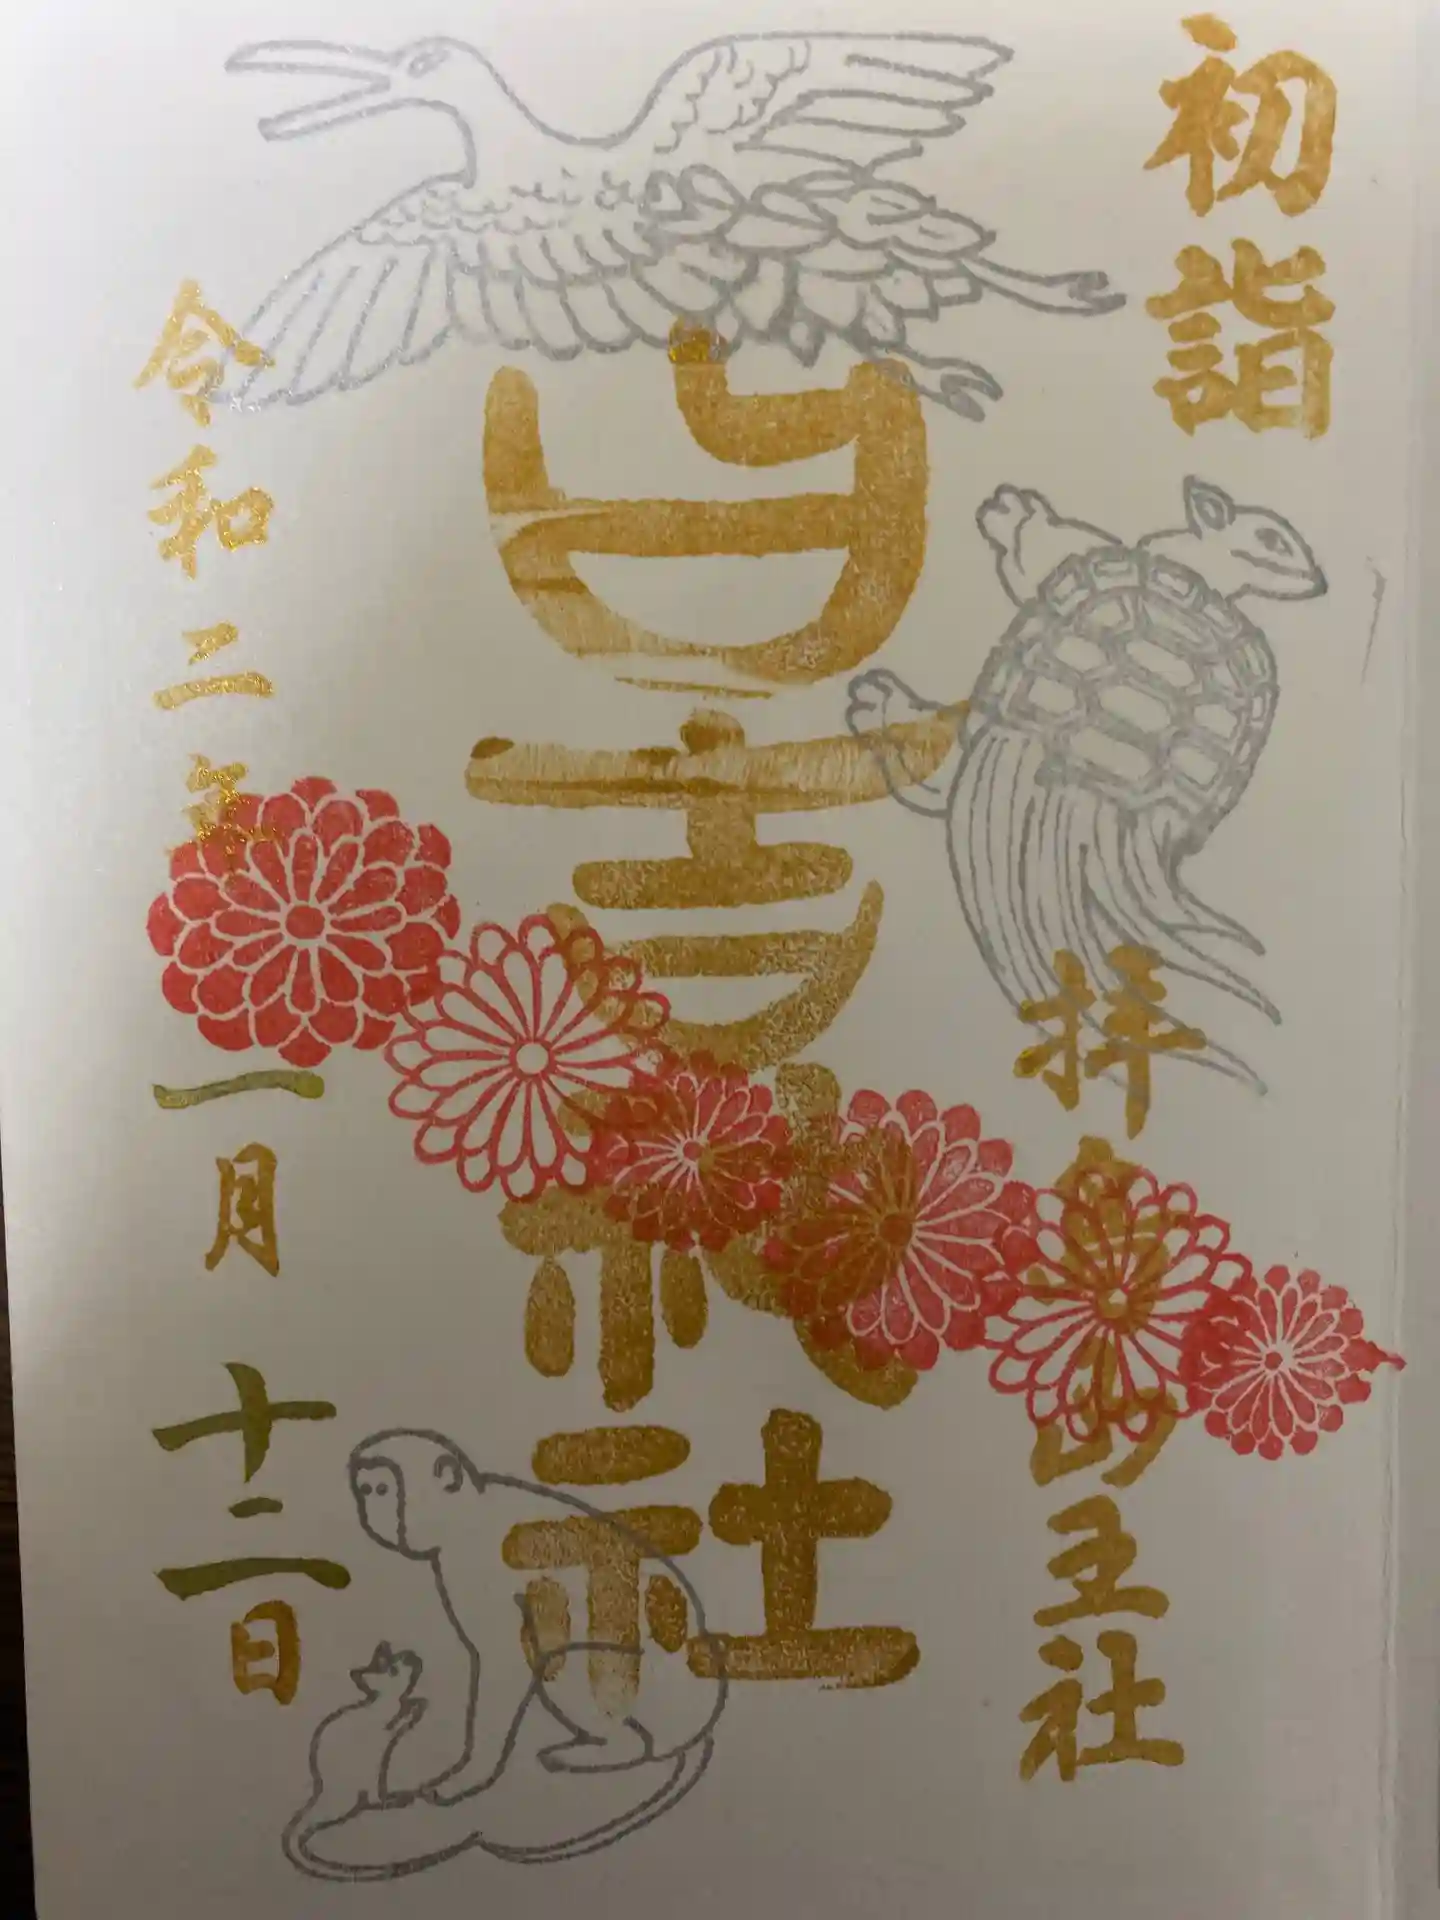 初詣
拝島山王社
日吉神社
令和二年一月十二日